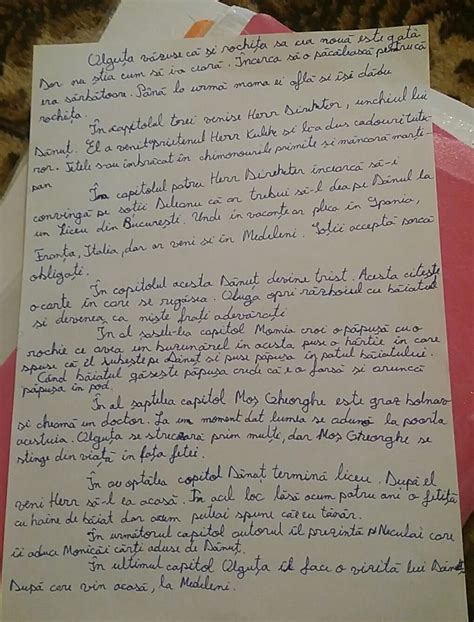 Olguța văzuse că și rochița sa cea nouă este gată
Dar nu știa cum să i-o ceară. Încerca să o păcălească pentrucă
era sărbătoare. Până la urmă mama ei află și își dădu
rochița.
În capitolul trei venise Herr Direktor, unchiul lui
Dănuț. El a venit prietenul Herr Kulke și le-a dus cadouri tutu-
ror. Fetele s-au îmbrăcat în chimonourile primite și mâncară marți-
pan
În capitolul patru Herr Direkter încearcă să-i
convingă pe soții Deleanu că ar trebui să-l dea pe Dănuț la
un liceu din București. Unde în vacanțe ar pleca în Spania,
Franța, Italia, dar ar veni și în Medeleni. Soții acceptă parcă
obligați.
În capitolul acesta Dănuț devine trist. Acesta citește
o carte în care se regăsea. Olguța opri războiul cu băiatul
și devenea ca niște frați adevărați
În al șaselea capitol Monica croi o păpușă cu o
rochie ce avea un buzunărel în acesta puse o hârtie în care
spuse că îl iubește pe Dănuț și puse păpușa în patul băiatului.
Când băiatul găsește păpușa crede că e o farsă și aruncă
păpușa în pod.
În al șaptelea capitol Moș Gheorghe este grav bolnav
și cheamă un doctor. La un moment dat lumea se adună la poarta
acestuia. Olguța se strecoară prim multe, dar Moș Gheorghe se
stinge din viață în fața fetei.
În optălea capitol Dănuț termină liceu. După el
veni Herr să-l ea acasă. În acel loc lăsă acum patru ani o fetiță
cu haine de băiat dar acum puteai spune că e cu tânăr.
În următorul capitol autorul îl prezintă pe Neculai care
îi aduce Monicăi cărți aduse de Dănuț.
În ultimul capitol Olguța îl face o vizită lui Dănuț
După care vin acasă, la Medeleni.